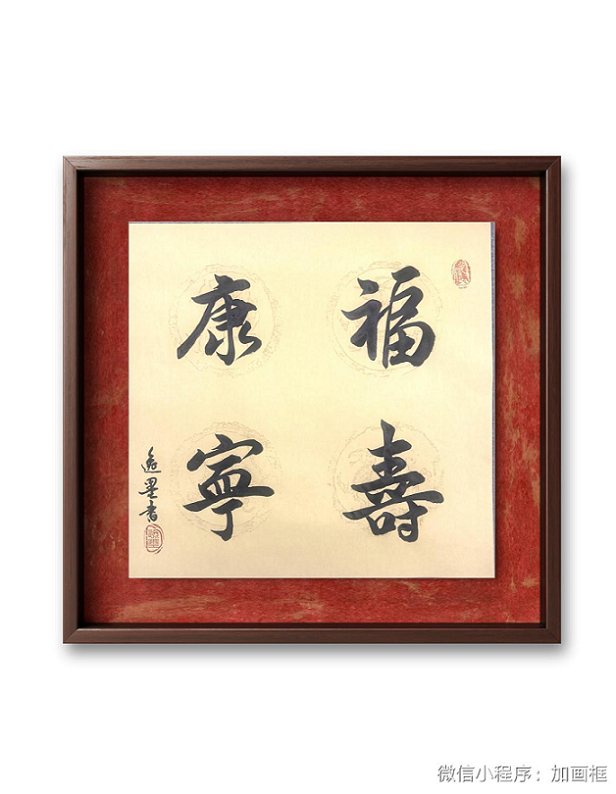 福壽
康寧
逸墨書
微信小程序：加画框